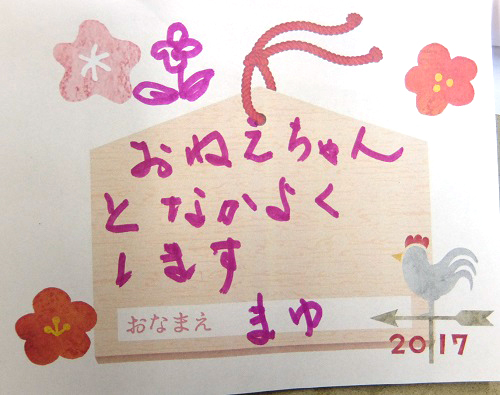 おねえちゃん
となかよく
します
おなまえ まゆ
2017